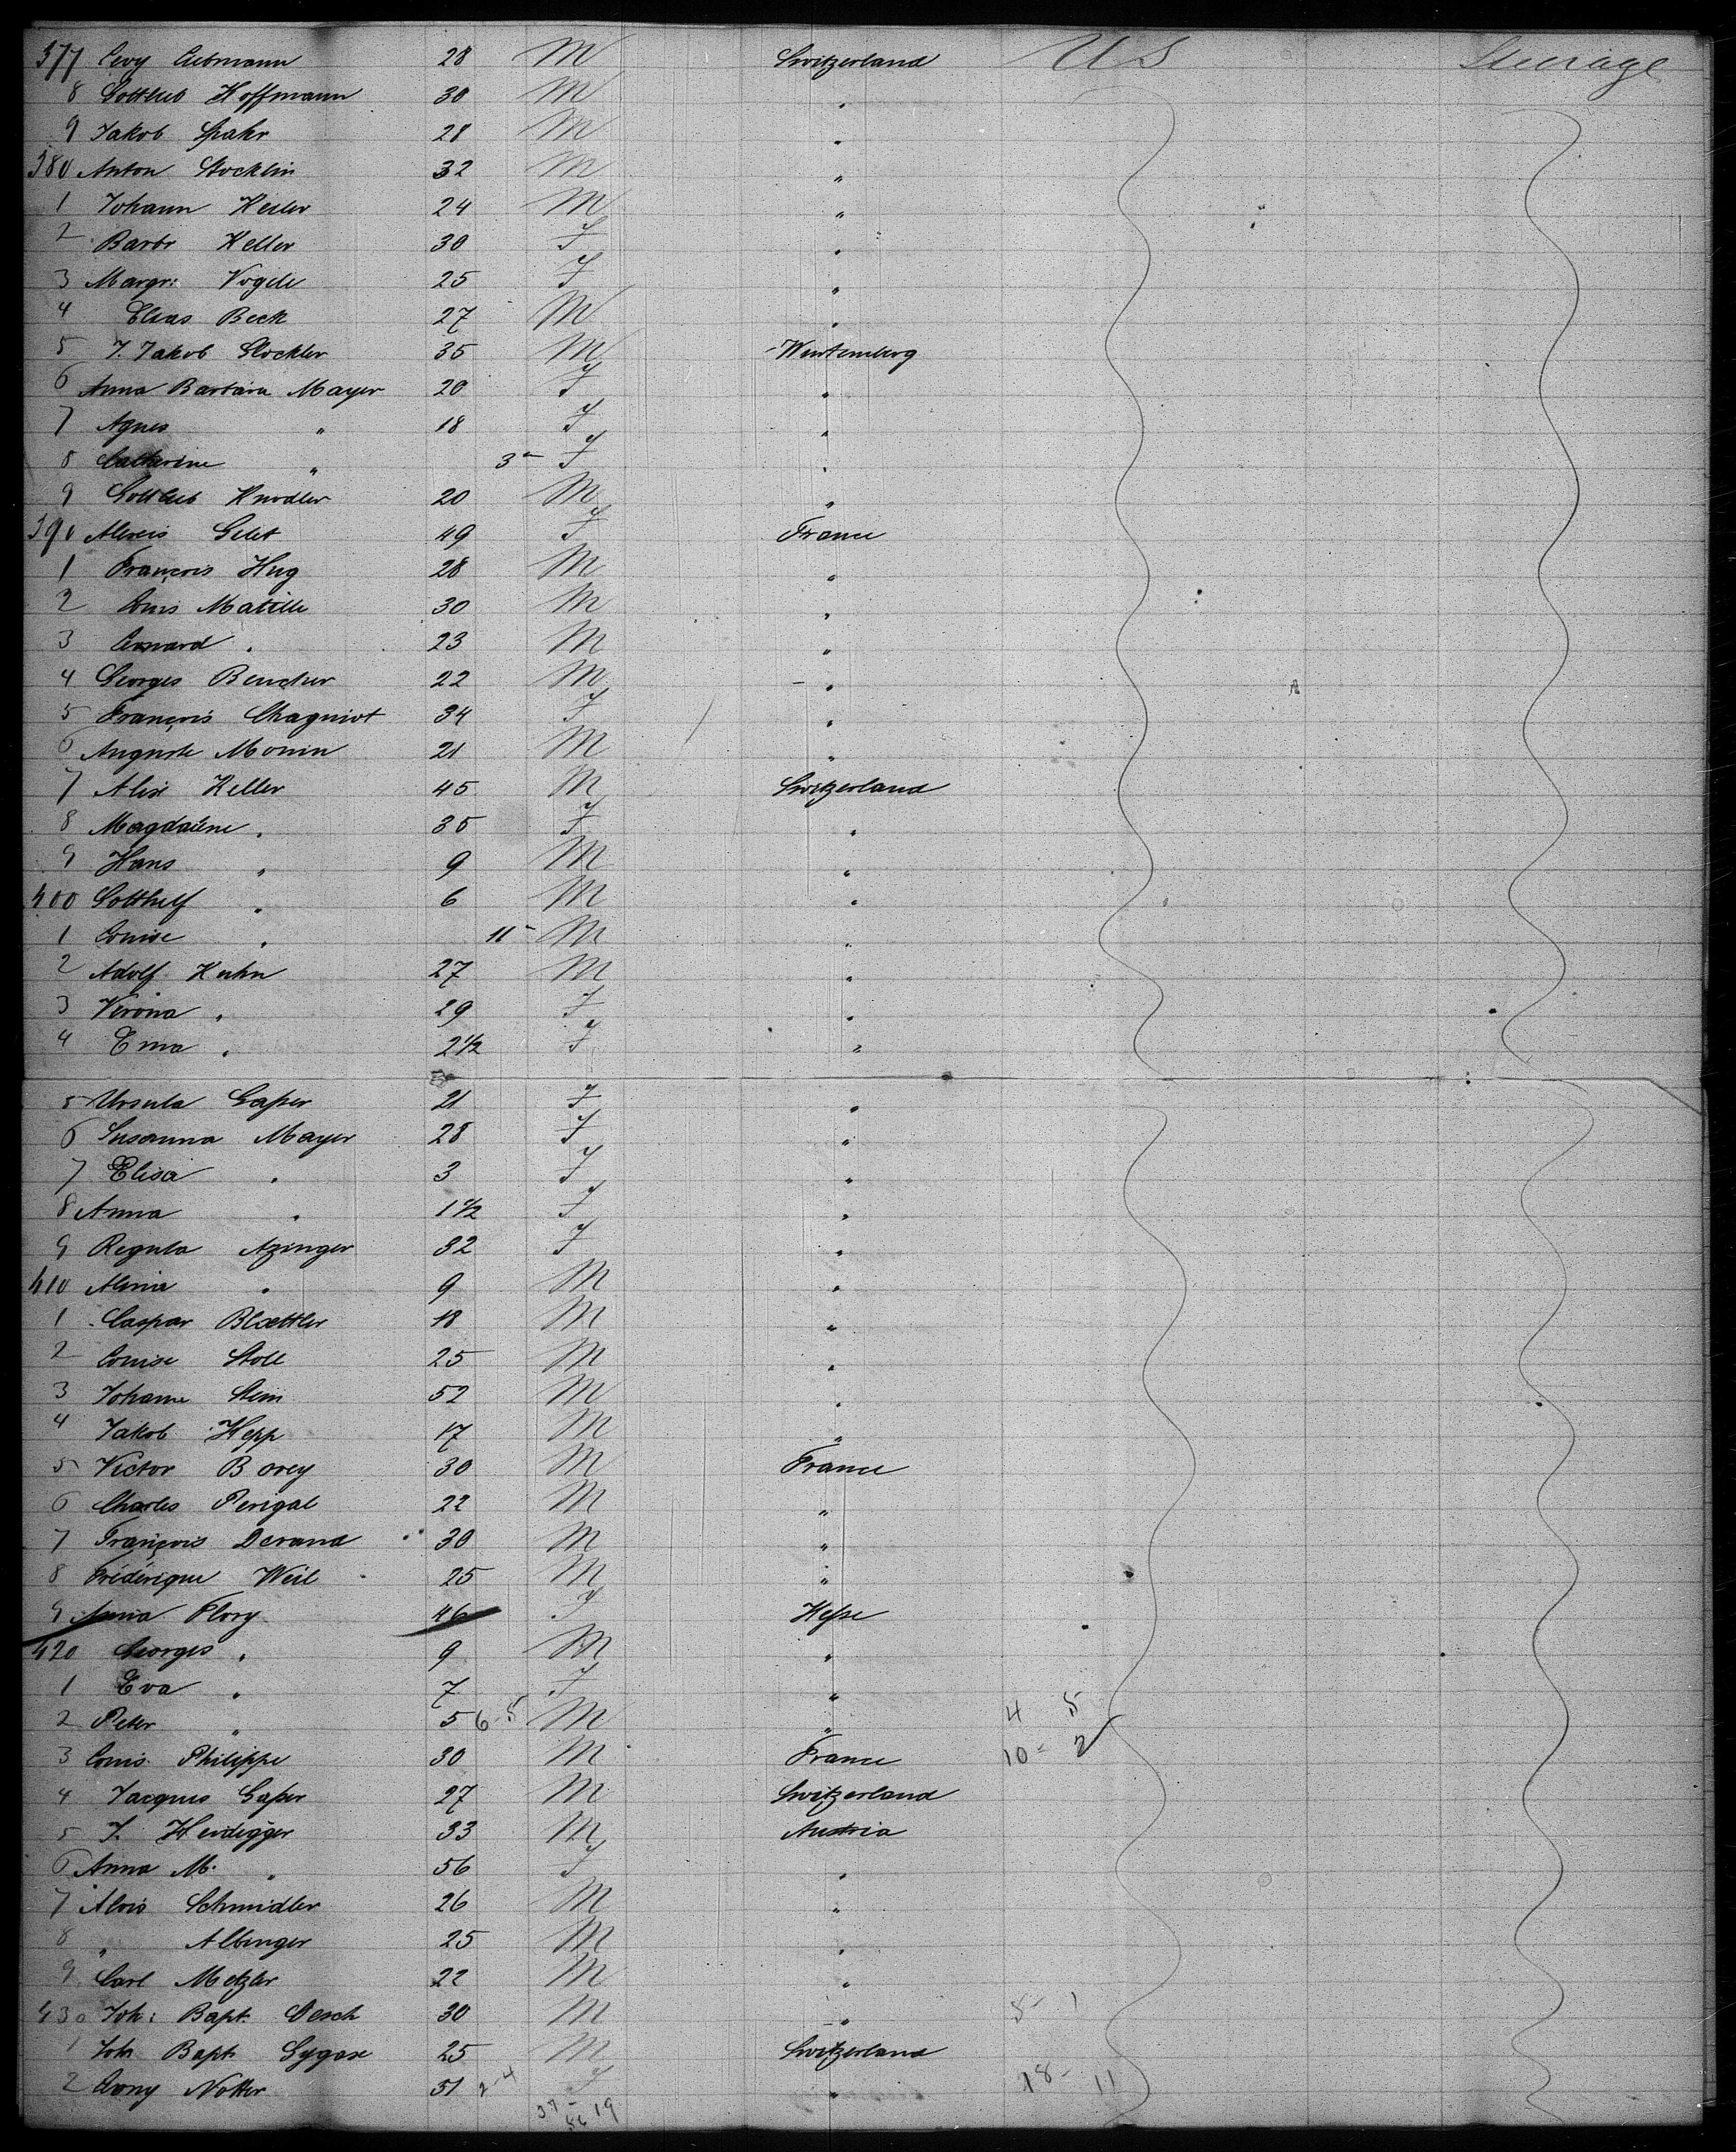 377 Levy Liebmann 28 M Switzerland US Steerage
8 Gottlieb Hoffmann 30 M "
9 Jakob Spahr 28 M "
380 Anton Stocklin 32 M "
1 Johann Keller 24 M "
2 Barbr Keller 30 F "
3 Margr: Vogele 25 F "
4 Elias Beck 27 M "
5 J. Jakob Glockler 35 M Wurtemberg
6 Anna Barbara Mayer 20 F "
7 Agnes " 18 F "
8 Catherine " 3 F "
9 Gottlieb Knodler 20 M "
390 Alexis Gelet 49 F France
1 François Hug 28 M "
2 Louis Matille 30 M "
3 Leonard " 23 M "
4 Georges 22 M "
5 François Chagniot 34 F "
6 Auguste Monin 21 M "
7 Alise Keller 45 M Switzerland
8 Magdalene " 35 F "
9 Hans " 9 M "
400 Gotthelf " 6 M "
1 Louise " 11 M "
2 Adolf Kuhn 27 M "
3 Verona " 29 F "
4 Ema " 2 1/2 F "
5 Ursula Gaßer 21 F "
6 Susanna Mayer 28 F "
7 Elisa " 3 F "
8 Anna " 1 1/2 F "
9 Regula Azinger 32 F "
410 " 9 M "
1 Caspar Blættler 18 M "
2 Louise Stoll 25 M "
3 Johann Stein 52 M "
4 Jakob Hepp 17 M "
5 Victor Borey 30 M France
6 Charles Perigal 22 M "
7 François Derand 30 M "
8 Fréderique Weil 25 M "
9 Anna Flory 46 F Heße
420 Georges " 9 M "
1 Eva " 7 F "
2 Peter " 5 6-5 M " 4 5
3 Louis Philippe 30 M France 10 - 2
4 Jacques Gaßer 27 M Switzerland
5 J. Heidegger 33 M Austria
6 Anna M. " 56 F "
7 Alois Schmidler 26 M "
8 " Albinger 25 M "
9 Carl Metzler 22 M "
430 Joh: Bapt. Oesch 30 M " 5 - 1
1 Joh Bapt. Gygax 25 M Switzerland
2 Notter 51 2-4 F " 18 - 11
37 - 19
56